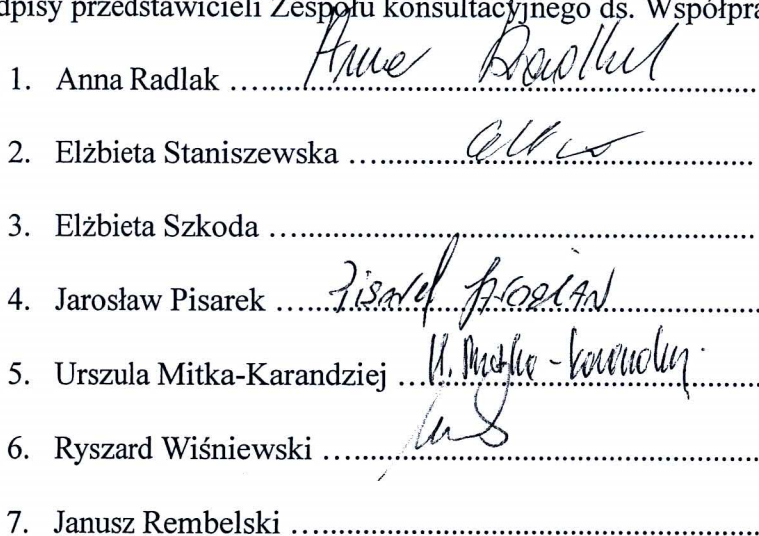 dpisy przedstawicieli Zespołu konsultacyjnego ds. Współpra
1. Anna Radlak .... Anna Radlak
2. Elżbieta Staniszewska ....
3. Elżbieta Szkoda ....
4. Jarosław Pisarek .... Pisarek Jarosław
5. Urszula Mitka-Karandziej .... U. Mitka-Karandziej
6. Ryszard Wiśniewski ....
7. Janusz Rembelski ....